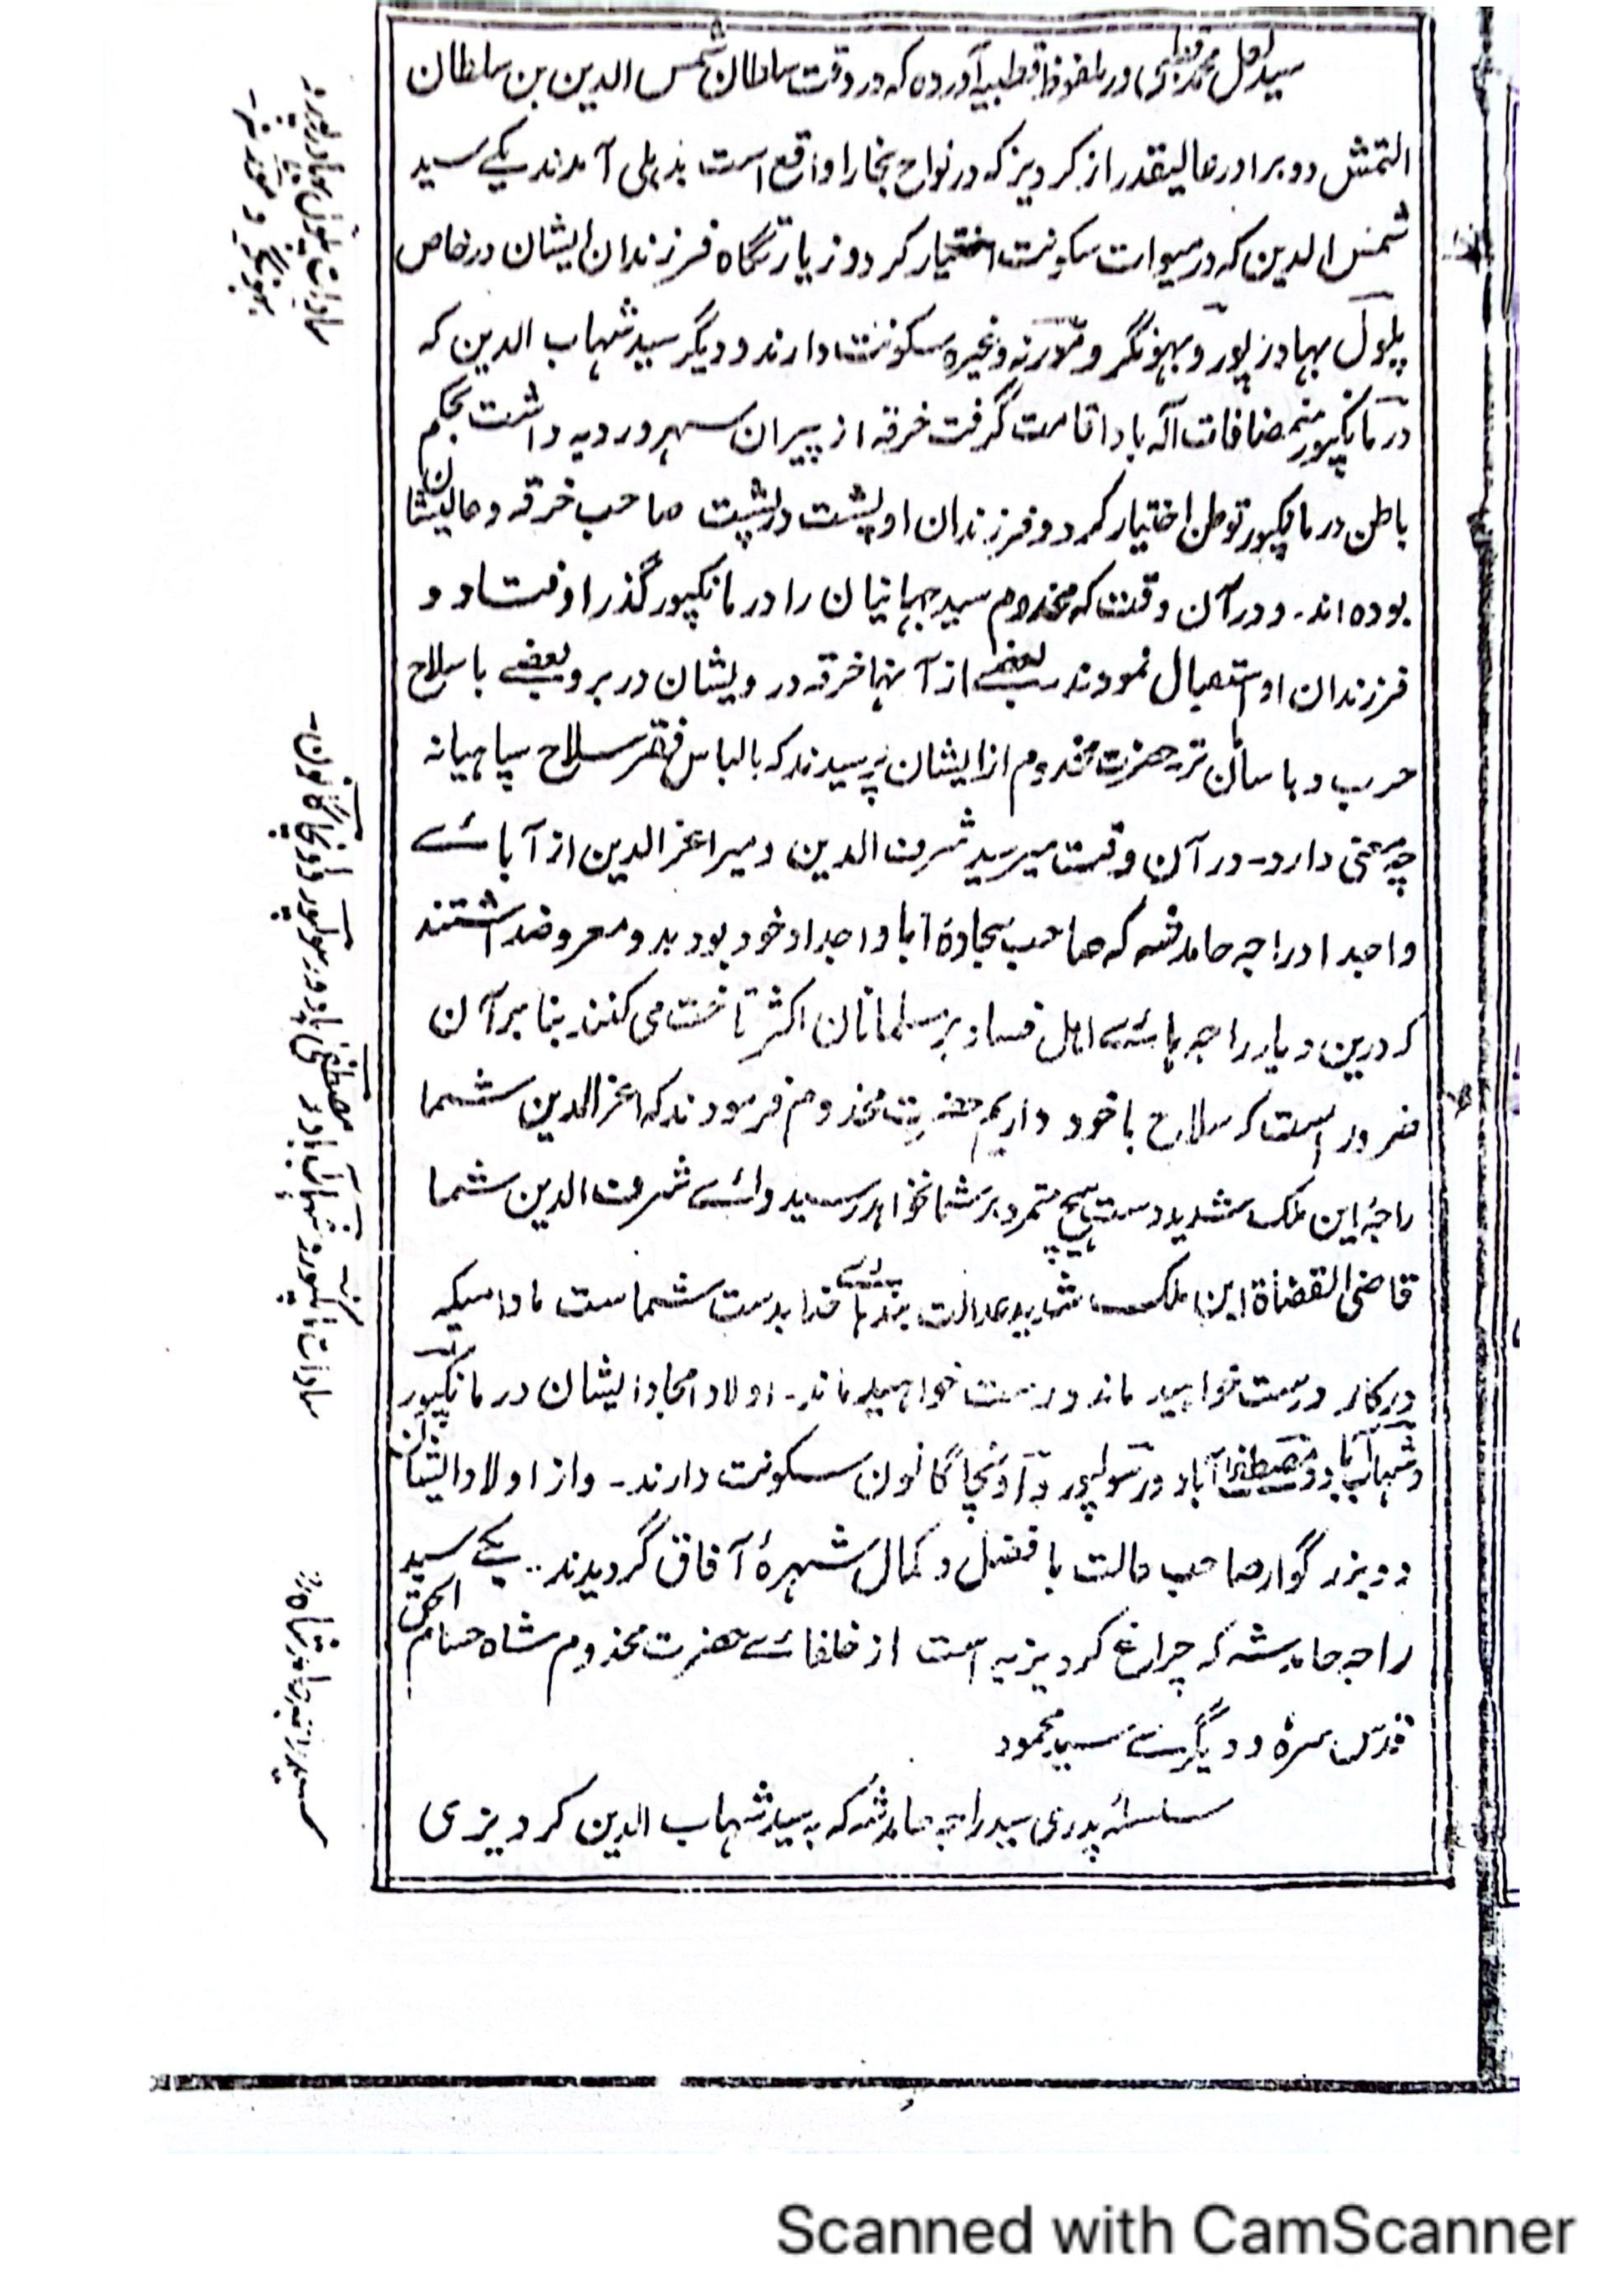 سید محمد در ملفوظ قطبیه آورده که در وقت سلطان شمس الدین بن سلطان
التمش دو برادر عالیقدر از کردیز که در نواح بخارا واقع است بدہلی آمدند یکے سید
شمس الدین که در میوات سکونت اختیار کرد و زیارتگاه فرزندان ایشان در خاص
پلول بهادر پور و بهونگر و غیره سکونت دارند و دیگر سید شہاب الدین که
در مانکپور من مضافات الہ باد اقامت گرفت خرقه از پیران سهروردیه داشت بحکم
باطن در مانکپور توطن اختیار کرد و فرزندان او پشت در پشت صاحب خرقه و عالیشان
بوده اند۔ و در آن وقت که مخدوم سید جہانیان را در مانکپور گذر اوفتاد و
فرزندان او استقبال نمودند بعضے از آنہا خرقه درویشان در بر و بعضے با سلاح
حرب و با سامان حضرت مخدوم از ایشان پرسیدند که با لباس فقر سلاح سپاہیانه
چه معنی دارد۔ در آن وقت میر سید شرف الدین و میر اعز الدین از آبائے
و اجداد راجہ حامد شہ که صاحب سجادۂ آبا و اجداد خود بودند و معروضداشتند
که درین دیار راجہ ہائے اہل فساد بر مسلمانان اکثر تاخت می کنند بنا بر آن
ضرور است که سلاح با خود داریم حضرت مخدوم فرمودند که اعز الدین شما
راجۂ این ملک شدید دست ہیچ متمرد بر شما نخواہد رسید و اے شرف الدین شما
قاضی القضاة این ملک شدید عدالت بندہائے خدا بدست شماست مادامیکه
درکار درست خواہید ماند درست خواہید ماند۔ اولاد امجاد ایشان در مانکپور
و شہاب آباد و مصطفے آباد و رسولپور و اونچا گانون سکونت دارند۔ و از اولاد ایشان
دو بزرگوار صاحب حالت با فضل و کمال شہرۂ آفاق گردیدند۔ یکے سید
راجہ حامد شہ که چراغ کردیزیہ است از خلفائے حضرت مخدوم شاہ حسام الحق
قدس سرہ و دیگرے سید محمود
سلسلۂ پدری سید راجہ حامد شہ که بہ سید شہاب الدین کردیزی
سادات پلول بہادر پور
بہونگر و
سادات مانکپور و شہاب آباد و مصطفے آباد و رسولپور و اونچا گانون۔
سید راجہ حامد شاہ
Scanned with CamScanner